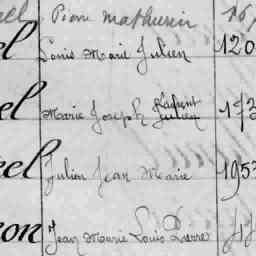 Pierre Mathurin
Louis Marie Julien 120
Marie Joseph Laurent Julien 173
Julien Jean Marie 1953
Jean Marie Louis Pierre